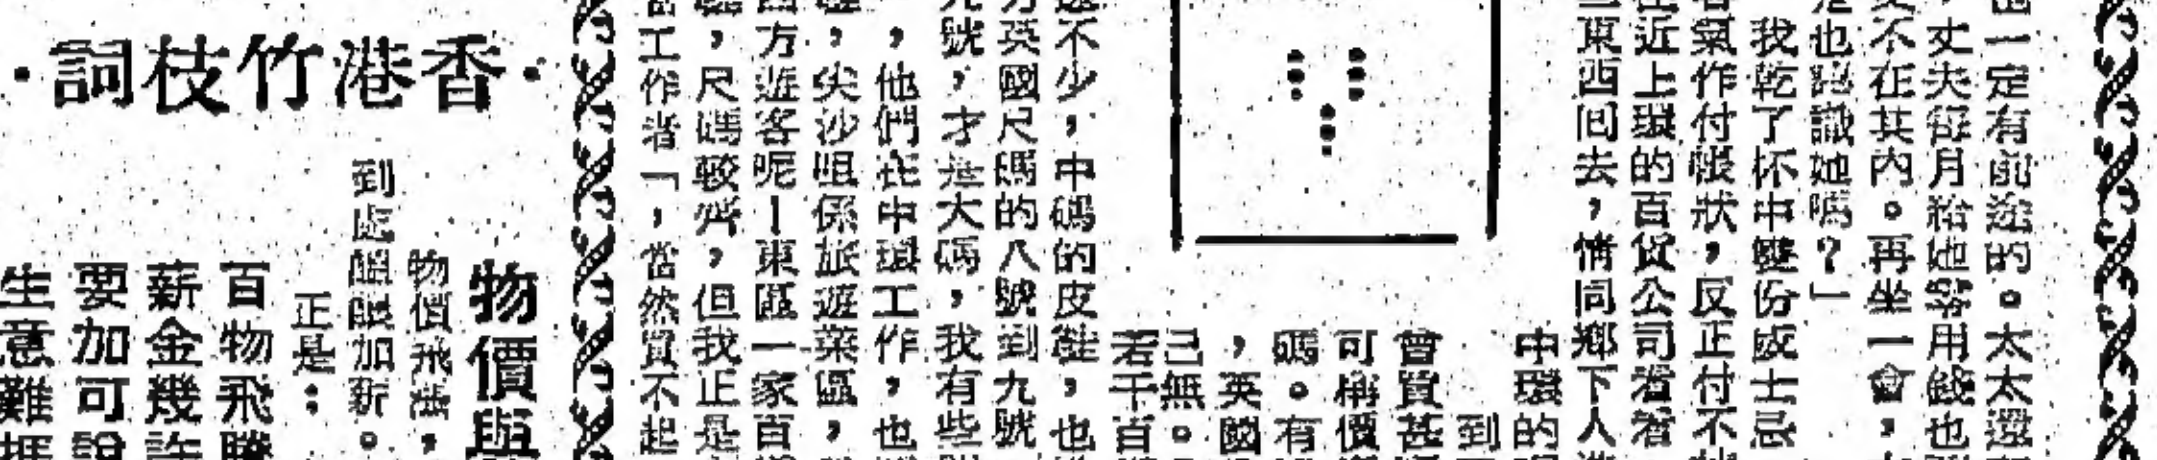 一定有前途的。太太還
丈夫每月給她零用錢也
不在其内。再坐一會，
也認識她嗎？」
我乾了杯中雙份威士忌
作付賬狀，反正付不
近上環的百貨公司看看
東西回去，情同鄉下人
中環的
到
曾買甚
可稱價
碼。有
，英國
己無。
若干百
不少，中碼的皮鞋，也
英國尺碼的八號到九號
號，才是大碼，我有些
，他們在中環工作，也
，尖沙咀係旅遊業區，
方遊客呢—東區一家百
，尺碼較齊，但我正是
工作者「，當然買不起
·香港竹枝詞·
物價與
物價飛漲，
到處醞釀加薪。
正是：
百物飛騰
薪金幾許
要加可說
生意難捱